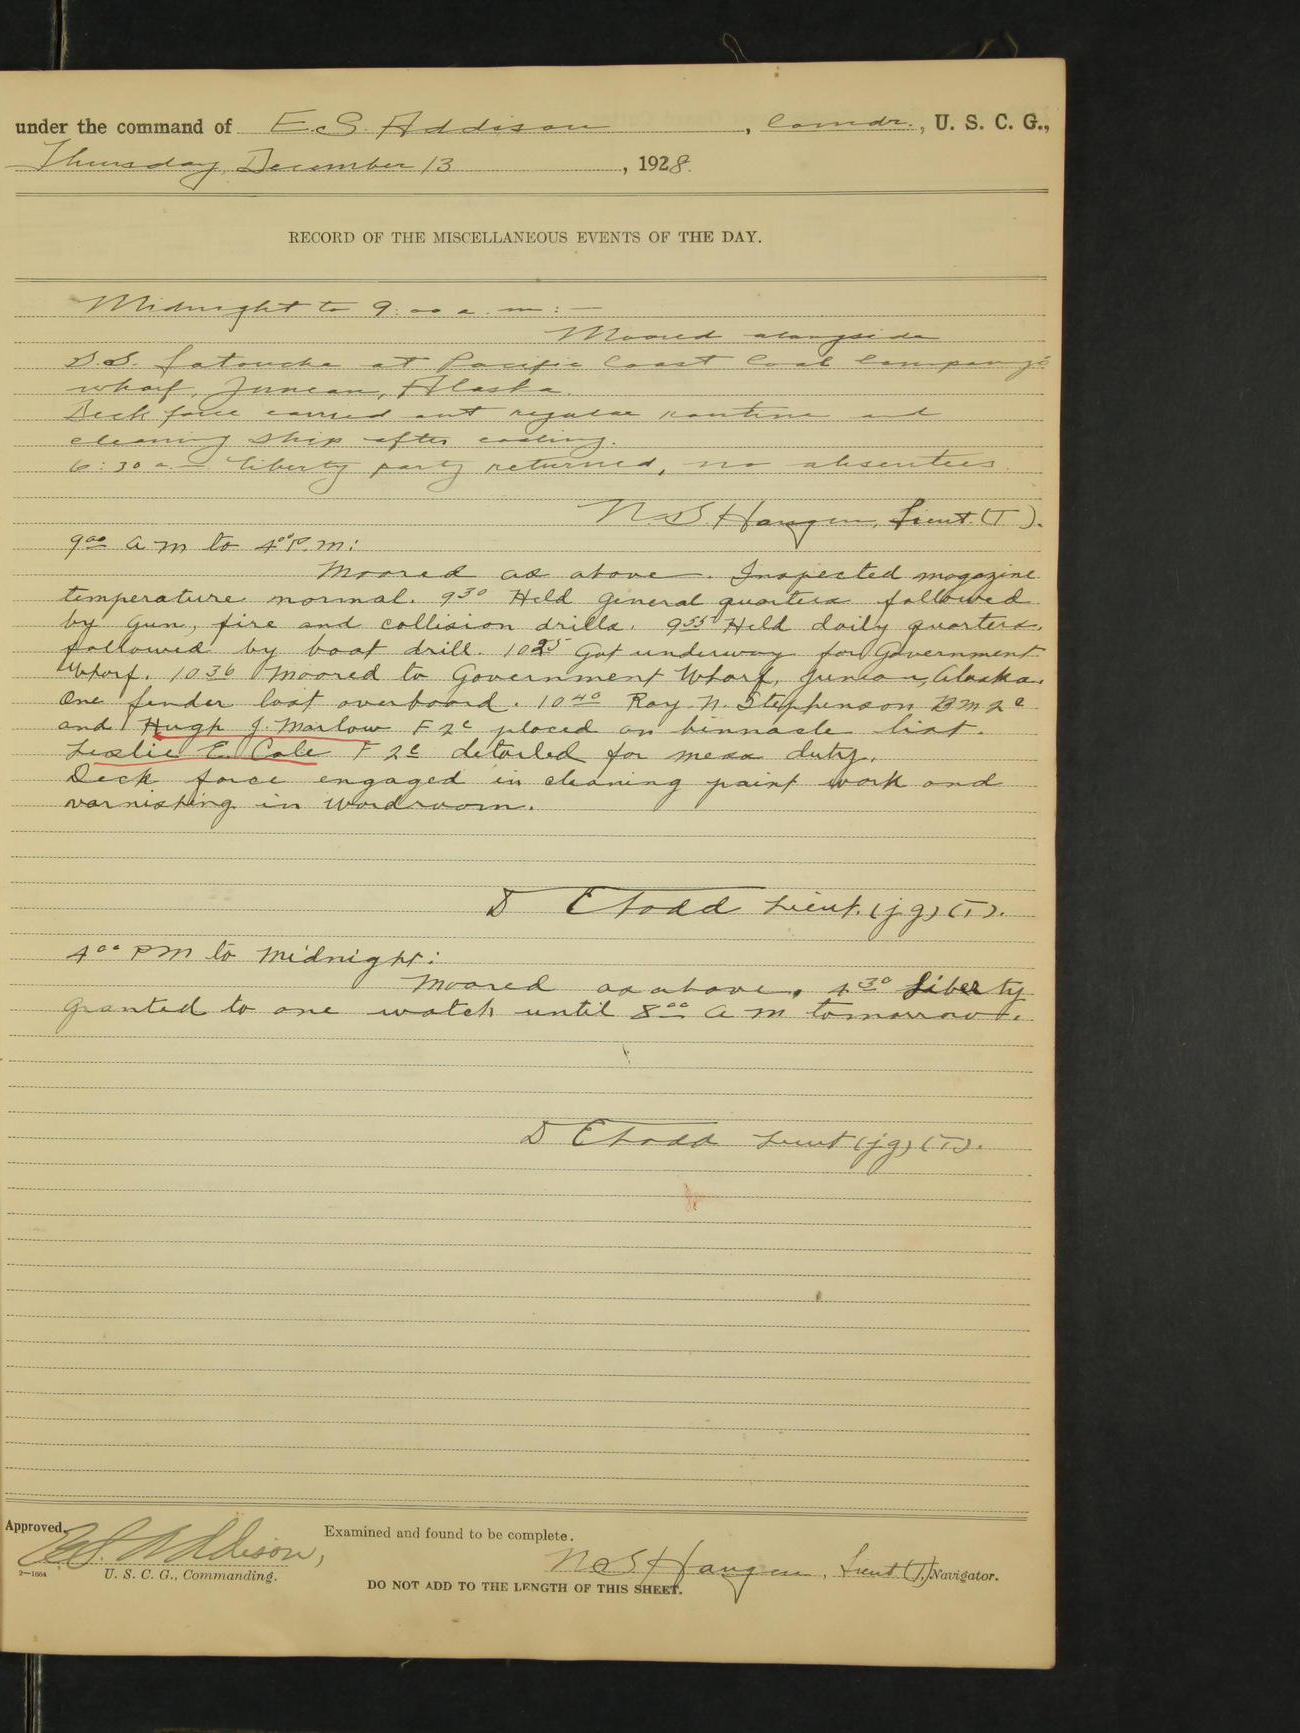 under the command of E. S. Addison, Comdr., U. S. C. G.,
Thursday, December 13, 1928.
RECORD OF THE MISCELLANEOUS EVENTS OF THE DAY.
Midnight to 9:00 a. m:—
Moored alongside
S.S. Latouche at Pacific Coast Coal Company's
wharf, Juneau, Alaska.
Deck force carried out regular routine and
cleaning ship after coaling.
6:30 a.m. liberty party returned, no absentees.
N. S. Haugen, Lieut. (T).
9 00 A M to 4 00 P. M:
Moored as above. Inspected magazine
temperature normal. 9 30 Held general quarters followed
by gun, fire and collision drills. 9 55 Held daily quarters
followed by boat drill. 10 25 Got underway for Government
Wharf. 10 36 Moored to Government Wharf, Juneau, Alaska.
One fender lost overboard. 10 40 Roy N. Stephenson B M 2 c
and Hugh J. Marlow F 2 c placed on binnacle list.
Leslie E. Cole F 2 c detailed for mess duty.
Deck force engaged in cleaning paint work and
varnishing in wardroom.
D E Todd Lieut. (jg) (T).
4 00 PM to Midnight:
Moored as above. 4 30 Liberty
granted to one watch until 8 00 A M tomorrow.
D E Todd Lieut (jg) (T).
Approved,
Examined and found to be complete.
E S Addison,
N S Haugen, Lieut. (T) Navigator.
2—1664
U. S. C. G., Commanding.
DO NOT ADD TO THE LENGTH OF THIS SHEET.